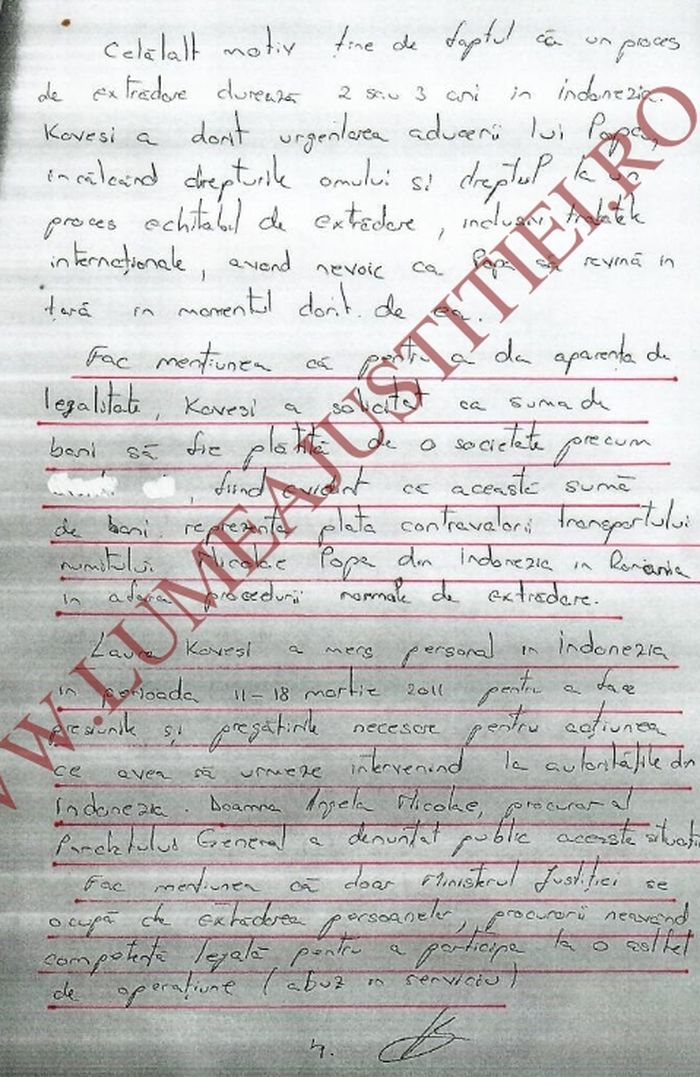 Celălalt motiv ține de faptul că un proces
de extrădare durează 2 sau 3 ani in indonezia.
Kovesi a dorit urgentarea aducerii lui Popa,
incălcând drepturile omului si dreptul la un
proces echitabil de extrădare, inclusiv tratatele
internaționale, avand nevoie ca Popa să revină in
țară in momentul dorit de ea.
Fac mențiunea că pentru a da aparența de
legalitate, Kovesi a solicitat ca suma de
bani să fie plătită de o societate precum
, fiind evident ca această sumă
de bani reprezenta plata contravalorii transportului
numitului Nicolae Popa din indonezia in Romania
in afara procedurii normale de extrădare.
Laura Kovesi a mers personal in Indonezia
in perioada 11-18 martie 2011 pentru a face
presiunile și pregătirile necesare pentru acțiunea
ce avea să urmeze intervenind la autoritățile din
Indonezia. Doamna Angela Nicolae, procuror al
Parchetului General a denunțat public aceasta situați
Fac mențiunea că doar Ministerul Justiției se
ocupă de extrădarea persoanelor, procurorii neavând
competență legală pentru a participa la o astfel
de operațiune (abuz in serviciu)
4.
WWW.LUMEAJUSTITIEI.RO